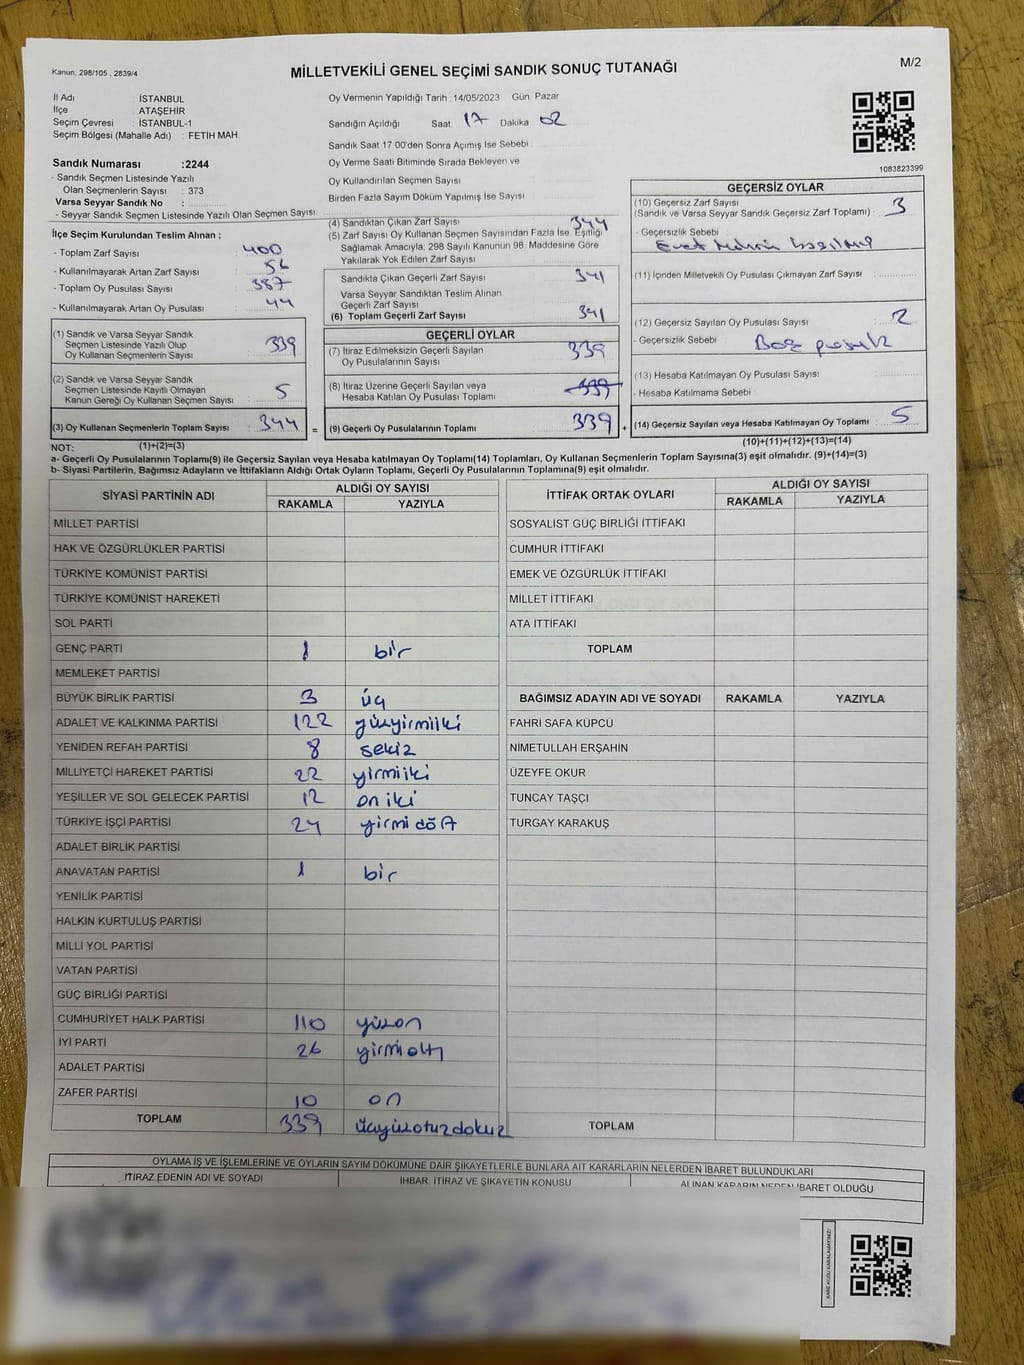 Kanun, 298/105 , 2839/4
MİLLETVEKİLİ GENEL SEÇİMİ SANDIK SONUÇ TUTANAĞI
M/2
İl Adı : İSTANBUL
İlçe : ATAŞEHİR
Seçim Çevresi : İSTANBUL-1
Seçim Bölgesi (Mahalle Adı) : FETİH MAH.
Oy Vermenin Yapıldığı Tarih : 14/05/2023 Gün Pazar
Sandığın Açıldığı Saat 17 Dakika 02
Sandık Saat 17:00'den Sonra Açımış İse Sebebi
Oy Verme Saati Bitiminde Sırada Bekleyen ve
Oy Kullandırılan Seçmen Sayısı
Birden Fazla Sayım Döküm Yapılmış İse Sayısı
1083823399
Sandık Numarası :2244
- Sandık Seçmen Listesinde Yazılı
Olan Seçmenlerin Sayısı : 373
Varsa Seyyar Sandık No :
- Seyyar Sandık Seçmen Listesinde Yazılı Olan Seçmen Sayısı:
İlçe Seçim Kurulundan Teslim Alınan ;
- Toplam Zarf Sayısı : 400
- Kullanılmayarak Artan Zarf Sayısı : 56
- Toplam Oy Pusulası Sayısı : 387
- Kullanılmayarak Artan Oy Pusulası : 44
(1) Sandık ve Varsa Seyyar Sandık
Seçmen Listesinde Yazılı Olup
Oy Kullanan Seçmenlerin Sayısı : 339
(2) Sandık ve Varsa Seyyar Sandık
Seçmen Listesinde Kayıtlı Olmayan
Kanun Gereği Oy Kullanan Seçmen Sayısı : 5
(3) Oy Kullanan Seçmenlerin Toplam Sayısı : 344 =
(4) Sandıktan Çıkan Zarf Sayısı : 344
(5) Zarf Sayısı Oy Kullanan Seçmen Sayısından Fazla İse, Eşitliği
Sağlamak Amacıyla, 298 Sayılı Kanunun 98. Maddesine Göre
Yakılarak Yok Edilen Zarf Sayısı
Sandıkta Çıkan Geçerli Zarf Sayısı : 341
Varsa Seyyar Sandıktan Teslim Alınan
Geçerli Zarf Sayısı
(6) Toplam Geçerli Zarf Sayısı : 341
GEÇERLİ OYLAR
(7) İtiraz Edilmeksizin Geçerli Sayılan
Oy Pusulalarının Sayısı : 339
(8) İtiraz Üzerine Geçerli Sayılan veya
Hesaba Katılan Oy Pusulası Toplamı : 339
(9) Geçerli Oy Pusulalarının Toplamı : 339 +
GEÇERSİZ OYLAR
(10) Geçersiz Zarf Sayısı
(Sandık ve Varsa Seyyar Sandık Geçersiz Zarf Toplamı) : 3
- Geçersizlik Sebebi
Evet
(11) İçinden Milletvekili Oy Pusulası Çıkmayan Zarf Sayısı :
(12) Geçersiz Sayılan Oy Pusulası Sayısı : 2
- Geçersizlik Sebebi : Boş pusula
(13) Hesaba Katılmayan Oy Pusulası Sayısı :
- Hesaba Katılmama Sebebi
(14) Geçersiz Sayılan veya Hesaba Katılmayan Oy Toplamı : 5
NOT: (1)+(2)=(3)
(10)+(11)+(12)+(13)=(14)
a- Geçerli Oy Pusulalarının Toplamı(9) ile Geçersiz Sayılan veya Hesaba katılmayan Oy Toplamı(14) Toplamları, Oy Kullanan Seçmenlerin Toplam Sayısına(3) eşit olmalıdır. (9)+(14)=(3)
b- Siyasi Partilerin, Bağımsız Adayların ve İttifakların Aldığı Ortak Oyların Toplamı, Geçerli Oy Pusulalarının Toplamına(9) eşit olmalıdır.
SİYASİ PARTİNİN ADI ALDIĞI OY SAYISI
RAKAMLA YAZIYLA
MİLLET PARTİSİ
HAK VE ÖZGÜRLÜKLER PARTİSİ
TÜRKİYE KOMÜNİST PARTİSİ
TÜRKİYE KOMÜNİST HAREKETİ
SOL PARTİ
GENÇ PARTİ 1 bir
MEMLEKET PARTİSİ
BÜYÜK BİRLİK PARTİSİ 3 üç
ADALET VE KALKINMA PARTİSİ 122 yüzyirmiiki
YENİDEN REFAH PARTİSİ 8 sekiz
MİLLİYETÇİ HAREKET PARTİSİ 22 yirmiiki
YEŞİLLER VE SOL GELECEK PARTİSİ 12 on iki
TÜRKİYE İŞÇİ PARTİSİ 24 yirmi dört
ADALET BİRLİK PARTİSİ
ANAVATAN PARTİSİ 1 bir
YENİLİK PARTİSİ
HALKIN KURTULUŞ PARTİSİ
MİLLİ YOL PARTİSİ
VATAN PARTİSİ
GÜÇ BİRLİĞİ PARTİSİ
CUMHURİYET HALK PARTİSİ 110 yüzon
İYİ PARTİ 26 yirmialtı
ADALET PARTİSİ
ZAFER PARTİSİ 10 on
TOPLAM 339 üçyüzotuzdokuz
İTTİFAK ORTAK OYLARI ALDIĞI OY SAYISI
RAKAMLA YAZIYLA
SOSYALİST GÜÇ BİRLİĞİ İTTİFAKI
CUMHUR İTTİFAKI
EMEK VE ÖZGÜRLÜK İTTİFAKI
MİLLET İTTİFAKI
ATA İTTİFAKI
TOPLAM
BAĞIMSIZ ADAYIN ADI VE SOYADI RAKAMLA YAZIYLA
FAHRİ SAFA KÜPCÜ
NİMETULLAH ERŞAHİN
ÜZEYFE OKUR
TUNCAY TAŞÇI
TURGAY KARAKUŞ
TOPLAM
OYLAMA İŞ VE İŞLEMLERİNE VE OYLARIN SAYIM DÖKÜMÜNE DAİR ŞİKAYETLERLE BUNLARA AİT KARARLARIN NELERDEN İBARET BULUNDUKLARI
İTİRAZ EDENİN ADI VE SOYADI İHBAR, İTİRAZ VE ŞİKAYETİN KONUSU ALINAN KARARIN NEDEN İBARET OLDUĞU